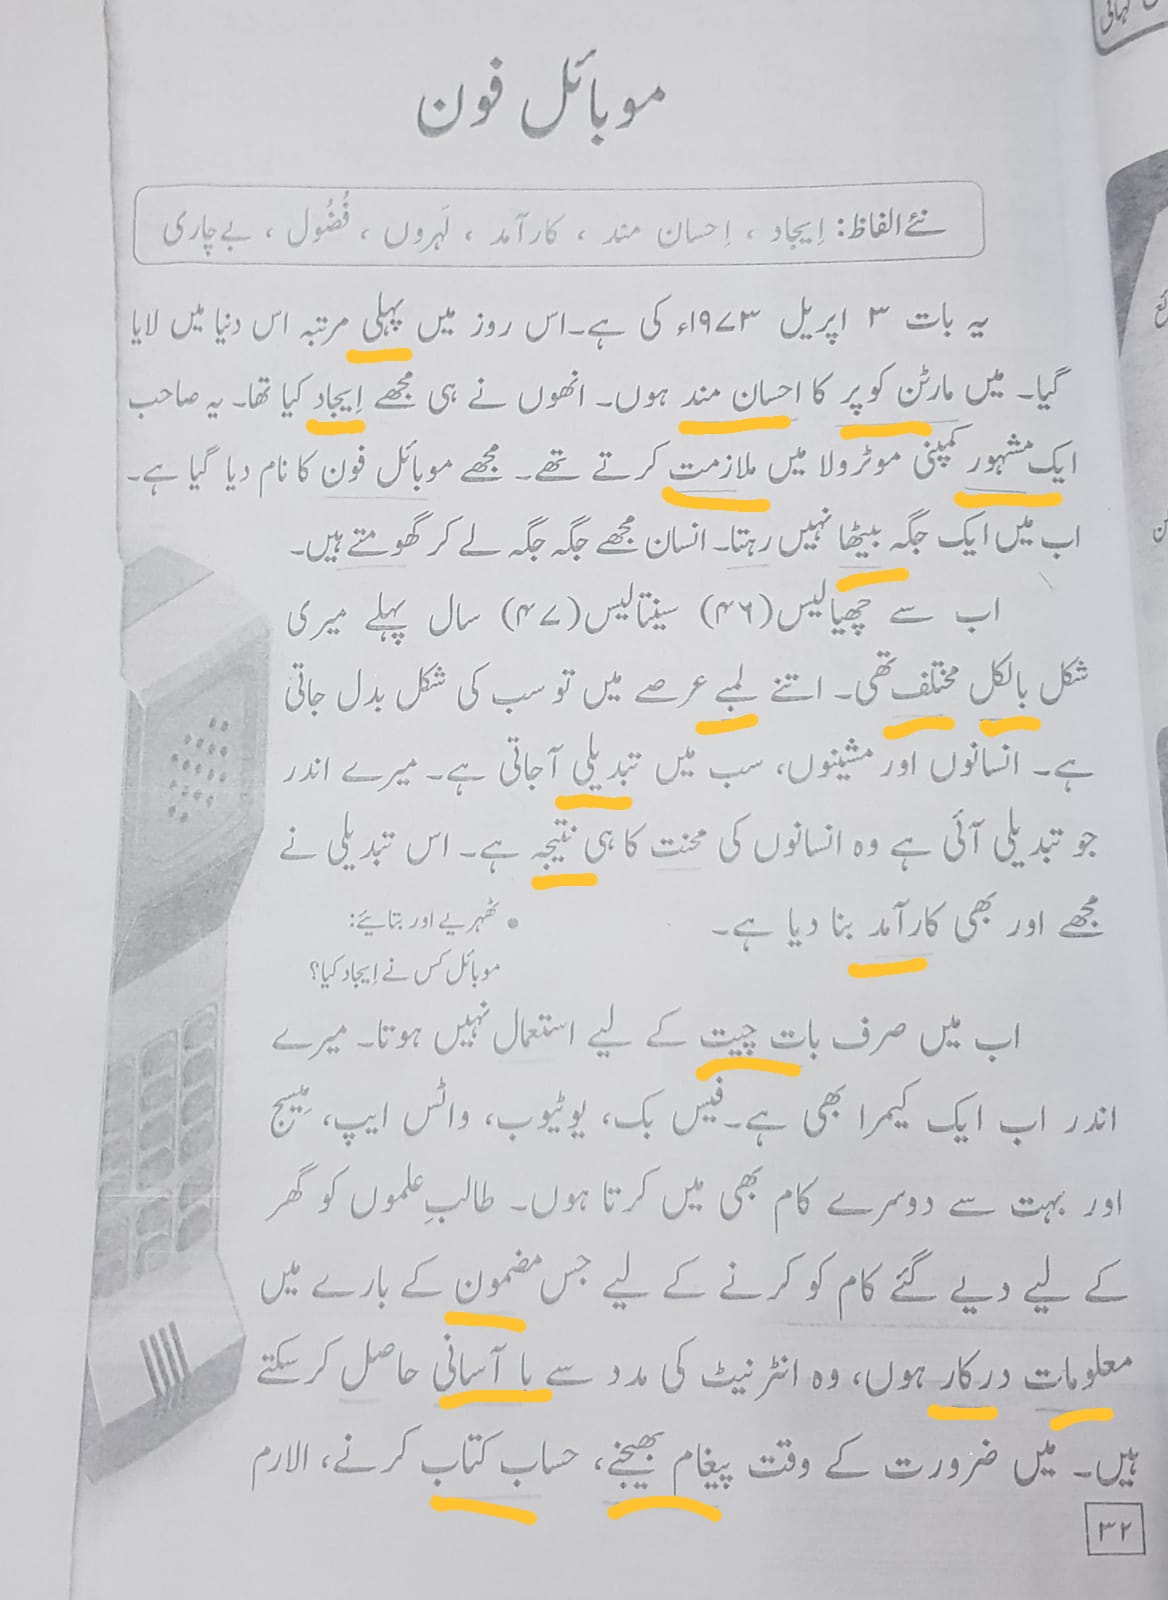 موبائل فون
نئے الفاظ: اِیجاد ، اِحسان مند ، کارآمد ، لَہروں ، فُضُول ، بے چاری
یہ بات ۳ اپریل ۱۹۷۳ء کی ہے۔ اس روز میں پہلی مرتبہ اس دنیا میں لایا
گیا۔ میں مارٹن کوپر کا احسان مند ہوں۔ انھوں نے ہی مجھے اِیجاد کیا تھا۔ یہ صاحب
ایک مشہور کمپنی موٹرولا میں ملازمت کرتے تھے۔ مجھے موبائل فون کا نام دیا گیا ہے۔
اب میں ایک جگہ بیٹھا نہیں رہتا۔ انسان مجھے جگہ جگہ لے کر گھومتے ہیں۔
اب سے چھیالیس (۴۶) سینتالیس (۴۷) سال پہلے میری
شکل بالکل مختلف تھی۔ اتنے لمبے عرصے میں تو سب کی شکل بدل جاتی
ہے۔ انسانوں اور مشینوں، سب میں تبدیلی آجاتی ہے۔ میرے اندر
جو تبدیلی آئی ہے وہ انسانوں کی محنت کا ہی نتیجہ ہے۔ اس تبدیلی نے
مجھے اور بھی کارآمد بنا دیا ہے۔
• ٹھہریے اور بتائیے:
موبائل کس نے اِیجاد کیا؟
اب میں صرف بات چیت کے لیے استعمال نہیں ہوتا۔ میرے
اندر اب ایک کیمرا بھی ہے۔ فیس بک، یوٹیوب، واٹس ایپ، میسج
اور بہت سے دوسرے کام بھی میں کرتا ہوں۔ طالبِ علموں کو گھر
کے لیے دیے گئے کام کو کرنے کے لیے جس مضمون کے بارے میں
معلومات درکار ہوں، وہ انٹرنیٹ کی مدد سے با آسانی حاصل کرسکتے
ہیں۔ میں ضرورت کے وقت پیغام بھیجنے، حساب کتاب کرنے، الارم
۳۲